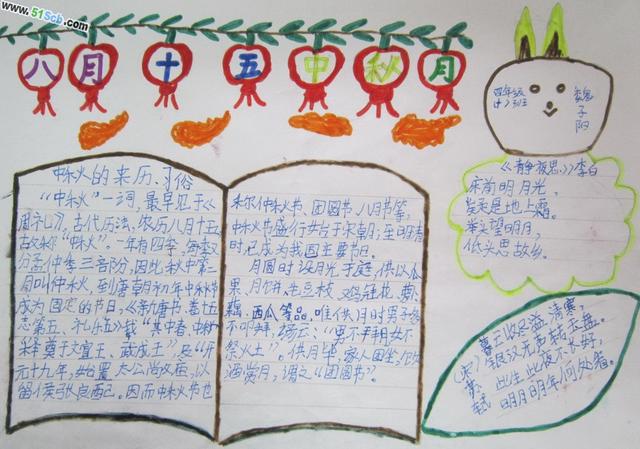 www.51Scb.com
八月十五中秋月
四年级
(十)班
魏子阳
中秋的来历、习俗
“中秋”一词,最早见于《
周礼》,古代历法,农历八月十五
故称“中秋”。一年有四季,每季又
分孟仲季三部份,因此秋中第二
月叫仲秋,到唐朝初年中秋节
成为固定的节日,《新唐书、卷十五
志第五、礼乐五》载“其中春、中秋
释奠于文宣王、武成王”及“开
元十九年,始置太公尚父庙,以
留侯张良配。因而中秋节也
称仲秋节、团圆节八月节等,
中秋节盛行始于宋朝;至明清
时,已成为我国主要节日。
月圆时设月光于庭,供以瓜
果、月饼、毛豆枝、鸡冠花、萝卜、
藕、西瓜等品。唯供月时男子多
不叩拜,谚云:“男不拜月女不
祭火土”。供月毕,家人团坐,饮
酒赏月,谓之“团圆节”。
《静夜思》李白
床前明月光,
疑是地上霜。
举头望明月,
低头思故乡。
暮云收尽溢清寒,
银汉无声转玉盘。
此生此夜不长好,
明月明年何处看。
(宋)苏轼